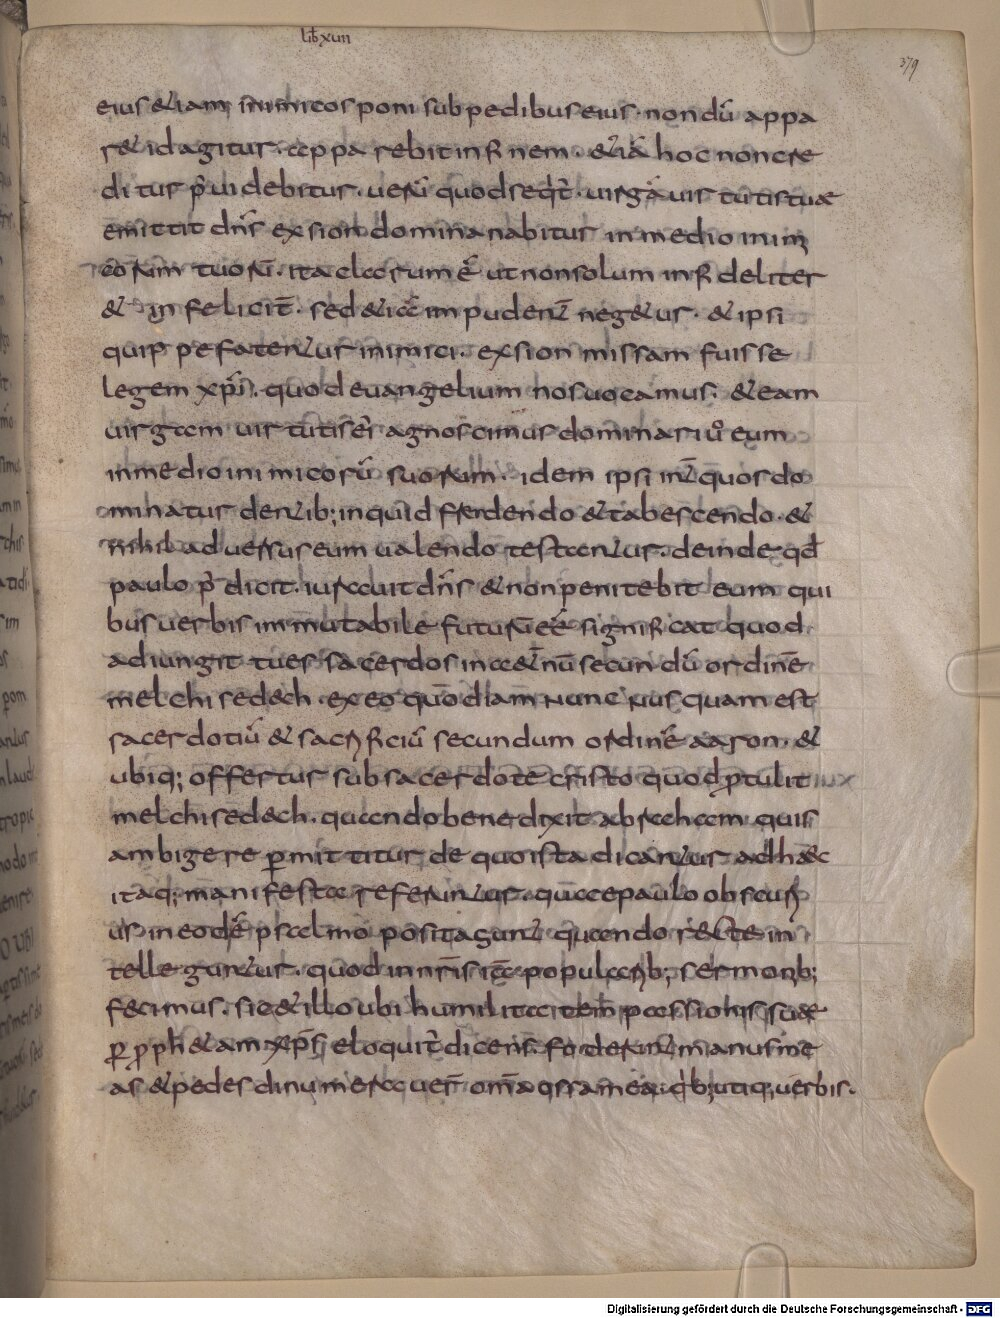 lib xvii
379
eius &iam inimicos poni sub pedibus eius · non dū appa
r& id agitur · apparebit in fine · &iā hoc noncre
ditur p̄ui debitur · uerū quod seqt̄ · uirgā uirtutis tuae
emittit dn̄s exsion dominanabitur in medio inimi
corum tuorū · ita clarum ē ut non solum infideliter
& in felicit̄ · sed &iā impudent̄ neg&ur · & ipsi
quippe fatentur inimici · exsion missam fuisse
legem xp̄i · quod euangelium nos uocamus · & eam
uirgam uirtutis ei agnoscimus dominari ū eum
in medio inimicorū suorum · idem ipsi int̄ quos do
minatur dentib; inquid frendendo & tabescendo · &
nihil aduersus eum ualendo testantur · deinde qd̄
paulo p̄ dicit · iurauit dn̄s & non penitebit eum qui
bus uerbis inmutabile futurū eē significat quod
adiungit tu es sacerdos in &nū secundū ordinē
melchisedech · ex eo quod iam nunc nusquam est
sacerdotiū & sacrificiū secundum ordinē aaron · &
ubiq; offertur sub sacerdote cristo quod p̄tulit
melchisedech · quando benedixit abraham quis
ambigere p̄mittitur de quo ista dicantur ad haec
itaq; manifesta referuntur · quae paulo obscuri
us in eodē psalmo posita sunt quando recte in
telleguntur · quod in nr̄is iā popularib; sermonib;
fecimus · sic & illo ubi humilitatem passionis suae
p̄ p ph&am xp̄s eloquit̄ dicens foderunt manus me
as & pedes dinumerauer̄ om̄a ossa mea · qb; utiq; uerbis ·
Digitalisierung gefördert durch die Deutsche Forschungsgemeinschaft - DFG